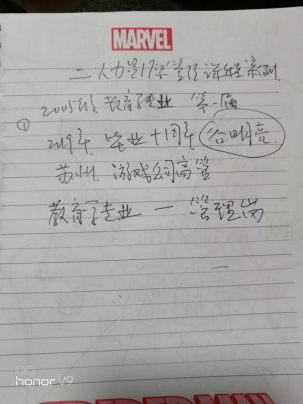 MARVEL
二 人力资源管理课程案例
2005级 教育学专业 第一届
① 2019年 毕业十周年
苏州 游戏公司高管
教育学专业 — 管理岗
honor V9